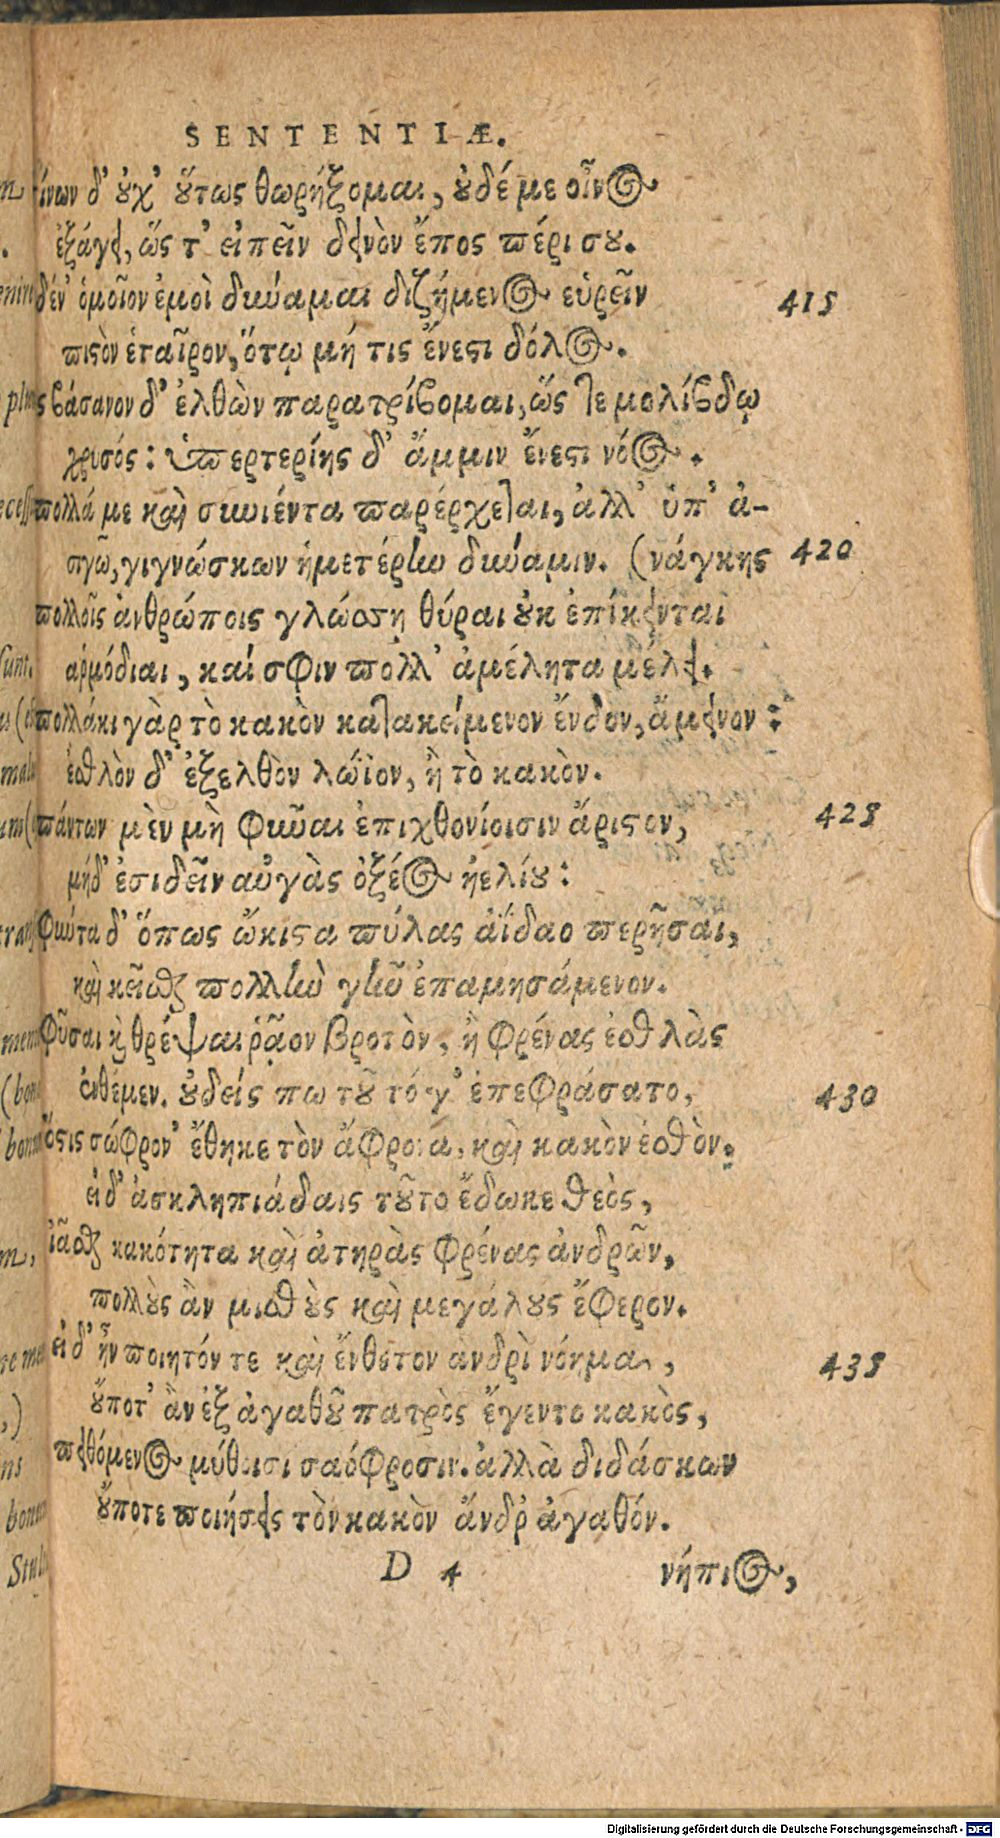 SENTENTIÆ.
ίνων δ' ȣ̓χ' ȣ̔́τως θωρήξομαι, ȣ̓δέ με οἶνος
ἐξάγει, ὥς τ' εἰπεῖν δεινὸν ἔπος πέρι σȣ.
δέν' ὁμοῖον ἐμοὶ δύναμαι διζήμενος εὑρεῖν 415
πιστὸν ἑταῖρον, ὅτῳ μή τις ἔνεστι δόλος.
ς βάσανον δ' ἐλθὼν παρατρίβομαι, ὥς τε μολίβδῳ
χρυσός: ὑπερτερίης δ' ἄμμιν ἔνεστι νόος.
πολλά με καὶ συνιέντα παρέρχεται, ἀλλ' ὑπ' ἀ-
σιγῶ, γιγνώσκων ἡμετέρην δύναμιν. (νάγκης 420
πολλοῖς ἀνθρώποις γλώσσῃ θύραι ȣ̓κ ἐπίκεινται
ἁρμόδιαι, καί σφιν πολλ' ἀμέλητα μέλει.
πολλάκι γὰρ τὸ κακὸν κατακείμενον ἔνδον, ἄμεινον:
ἐσθλὸν δ' ἐξελθὸν λώϊον, ἢ τὸ κακὸν.
πάντων μὲν μὴ φῦναι ἐπιχθονίοισιν ἄριστον, 425
μήδ' ἐσιδεῖν αὐγὰς ὀξέος ἠελίȣ:
φύντα δ' ὅπως ὤκιστα πύλας ἀΐδαο περῆσαι,
καὶ κεῖσθαι πολλὴν γῆν ἐπαμησάμενον.
φῦσαι καὶ θρέψαι ῥᾷον βροτὸν, ἢ φρένας ἐσθλὰς
ἐνθέμεν. ȣ̓δείς πω τȣ͂τό γ' ἐπεφράσατο, 430
ὅστις σώφρον' ἔθηκε τὸν ἄφρονα, καὶ κακὸν ἐσθλὸν.
εἰ δ' ἀσκληπιάδαις τȣ͂το ἔδωκε θεὸς,
ἰᾶσθαι κακότητα καὶ ἀτηρὰς φρένας ἀνδρῶν,
πολλȣ̀ς ἂν μισθȣ̀ς καὶ μεγάλȣς ἔφερον.
εἰ δ' ἦν ποιητόν τε καὶ ἔνθετον ἀνδρὶ νόημα, 435
ȣ̓́ποτ' ἂν ἐξ ἀγαθȣ͂ πατρὸς ἔγεντο κακὸς,
πειθόμενος μύθοισι σαόφροσιν. ἀλλὰ διδάσκων
ȣ̓́ποτε ποιήσεις τὸν κακὸν ἄνδρ' ἀγαθόν.
D 4 νήπιος,
Digitalisierung gefördert durch die Deutsche Forschungsgemeinschaft - DFG